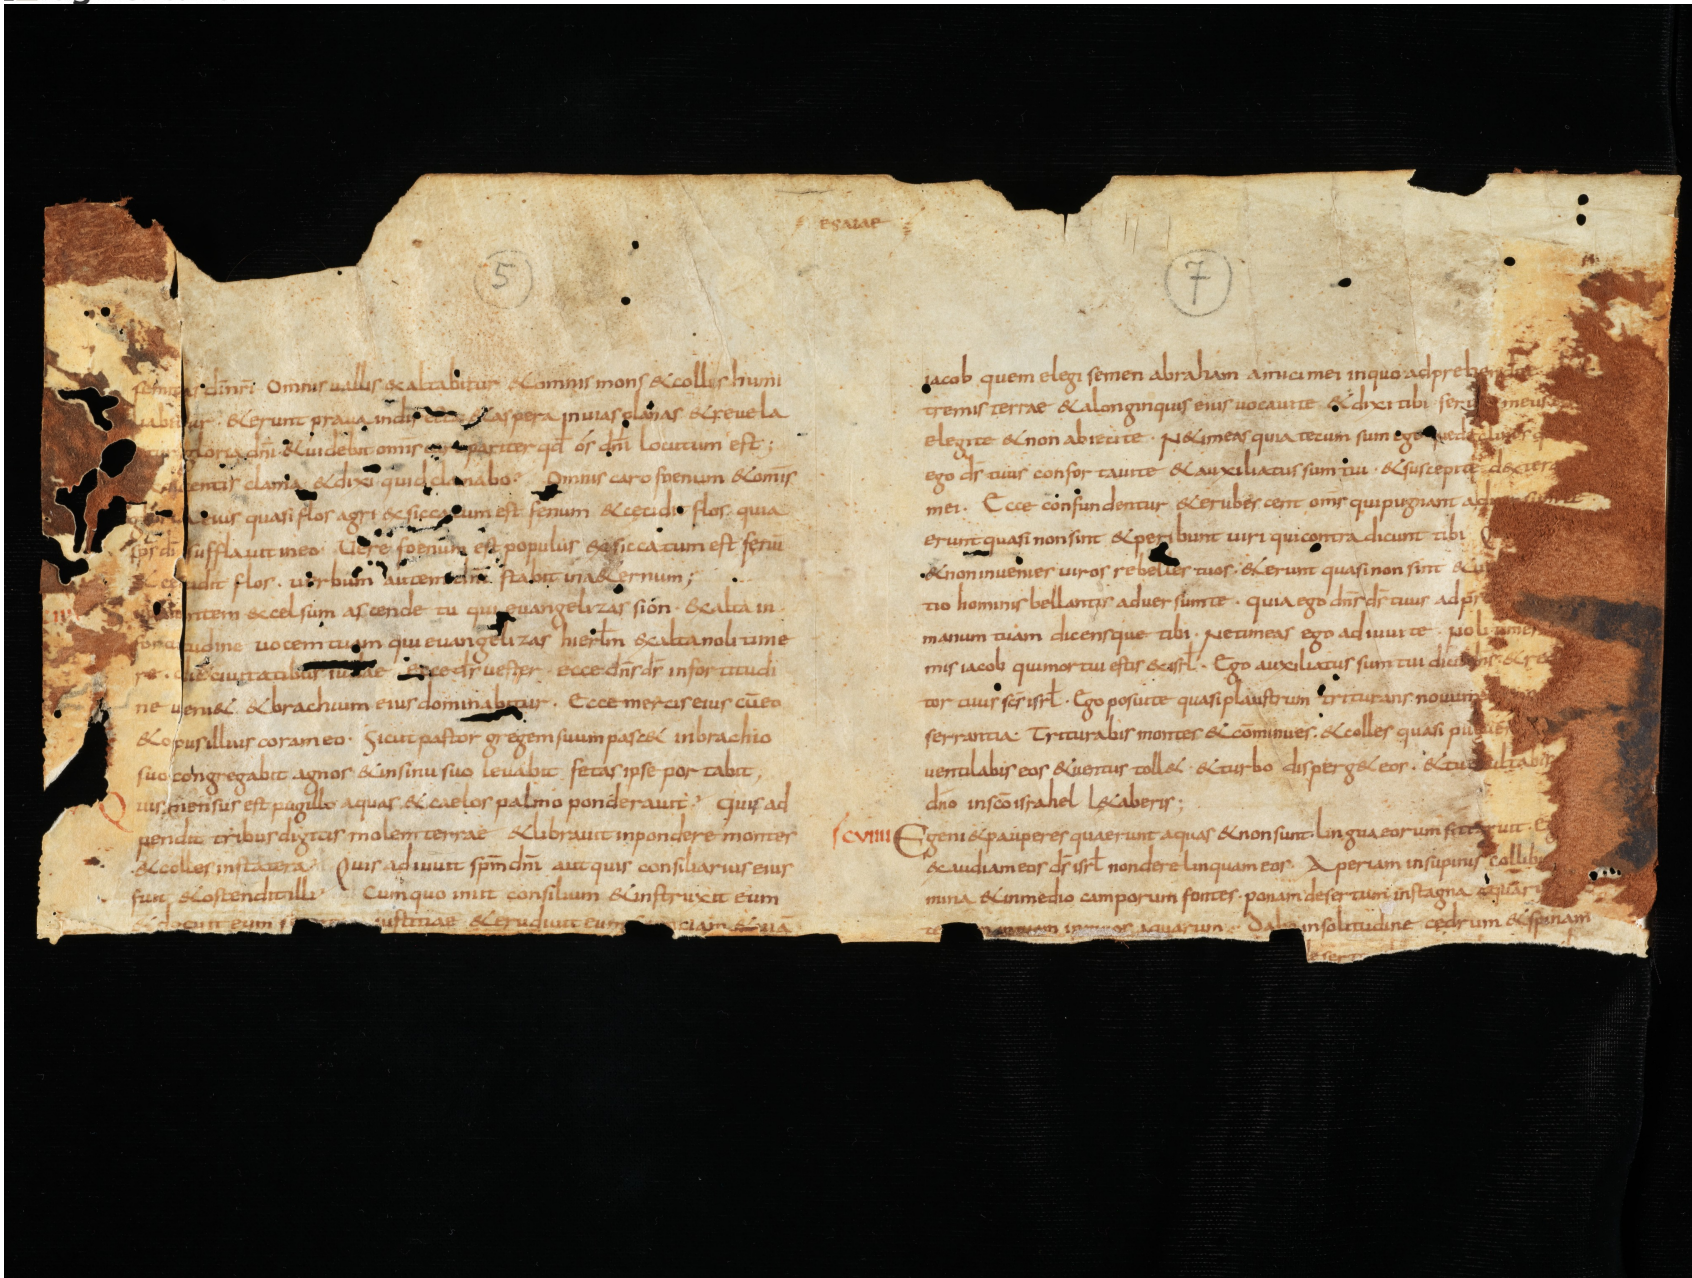 ESAIAE
5
7
semitas dni nri. Omnis uallis exaltabitur & omnis mons & collis humi
liabitur. & erunt praua in directa & aspera in uias planas & reuela
gloria dni. & uidebit omnis caro pariter qd os dni locutum est;
dicentis clama & dixi quid clamabo? Omnis caro foenum & omis
gloria eius quasi flos agri exsiccatum est fenum & cecidit flos. quia
sps dni sufflauit in eo. Uere foenum est populus exsiccatum est fenu
& cecidit flos. uerbum autem dni stabit in a&ernum;
montem excelsum ascende tu qui euangelizas sion. exalta in
fortitudine uocem tuam qui euangelizas hierlm exalta noli time
re. dic ciuitatibus iudae Ecce ds uester. ecce dns ds in fortitudi
ne ueni&. & brachium eius dominabitur. Ecce mercis eius cu eo
& opus illius coram eo. Sicut pastor gregem suum pasc& in brachio
suo congregabit agnos & in sinu suo leuabit fetas ipse portabit,
Quis mensus est pugillo aquas & caelos palmo ponderauit? Quis ad
pendit tribus digitis molem terrae & librauit in pondere montes
& colles in statera? Quis adiuuit spm dni aut quis consiliarius eius
fuit & ostendit illi? Cum quo iniit consilium & instruxit eum
& docuit eum iustitiae & erudiuit eum & uia
iacob quem elegi semen abraham amici mei in quo adprehendi te
tremis terrae & a longinquis eius uocaui te & dixi tibi seruus meus
elegi te & non abieci te. Ne timeas quia tecum sum ego ne declines
ego ds tuus confortaui te & auxiliatus sum tui. & suscepit te dextera
mei. Ecce confundentur & erubescent oms qui pugnant aduersum
erunt quasi non sint & peribunt uiri qui contradicunt tibi Q
& non inuenies uiros rebelles tuos. & erunt quasi non sint &
tio hominis bellantis aduersum te. quia ego dns ds tuus adpr
manum tuam dicensque tibi. Ne timeas ego adiuui te. Noli timere
mis iacob qui mortui estis & isrl. Ego auxiliatus sum tui dicit dns & re
tor tuus scs isrl. Ego posui te quasi plaustrum triturans nouum
serrantia. Triturabis montes & cōminues. & colles quasi puluere
uentilabis eos & uentus toll& . & turbo disperg& eos. & tu exultabis
dno in sco israhel l&aberis;
CVIIII Egeni & pauperes quaerunt aquas & non sunt. lingua eorum siti aruit. Eg
exaudiam eos ds isrl non derelinquam eos. Aperiam in supinis collibus
mina & in medio camporum fontes. ponam desertum in stagna aquaru
aquarum. Dabo in solitudine cedrum & spinam